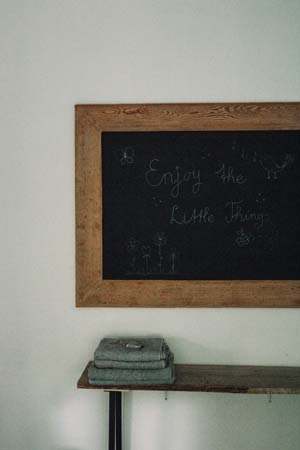 Enjoy the
Little Thing